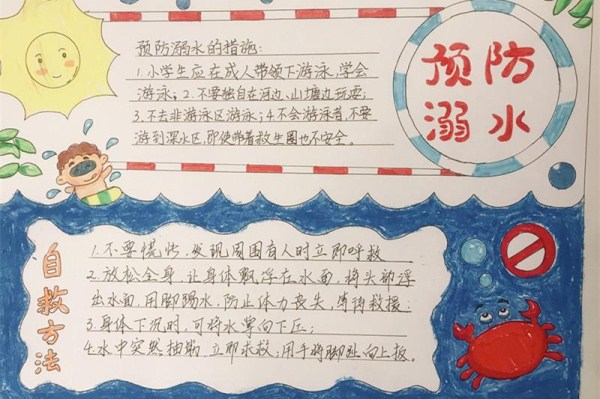 预防溺水的措施:
1.小学生应在成人带领下游泳,学会
游泳;2.不要独自在河边、山塘边玩耍;
3.不去非游泳区游泳;4.不会游泳者,不要
游到深水区,即使带着救生圈也不安全。
预防
溺水
自救方法
1.不要慌张,发现周围有人时立即呼救
2.放松全身,让身体飘浮在水面,将头部浮
出水面,用脚踢水,防止体力丧失,等待救援;
3.身体下沉时,可将水掌向下压;
4.水中突然抽筋,立即求救;用手将脚趾向上扳。